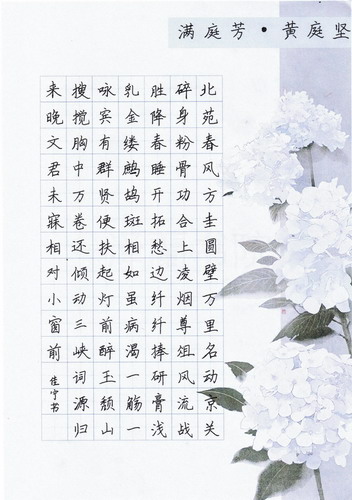 满庭芳·黄庭坚
北苑春风方圭圆璧万里名动京关
碎身粉骨功合上凌烟尊俎风流战
胜降春睡开拓愁边纤纤捧研膏浅
乳金缕鹧鸪斑相如虽病渴一觞一
咏宾有群贤便扶起灯前醉玉颓山
搜揽胸中万卷还倾动三峡词源归
来晚文君未寐相对小窗前
佳宁书